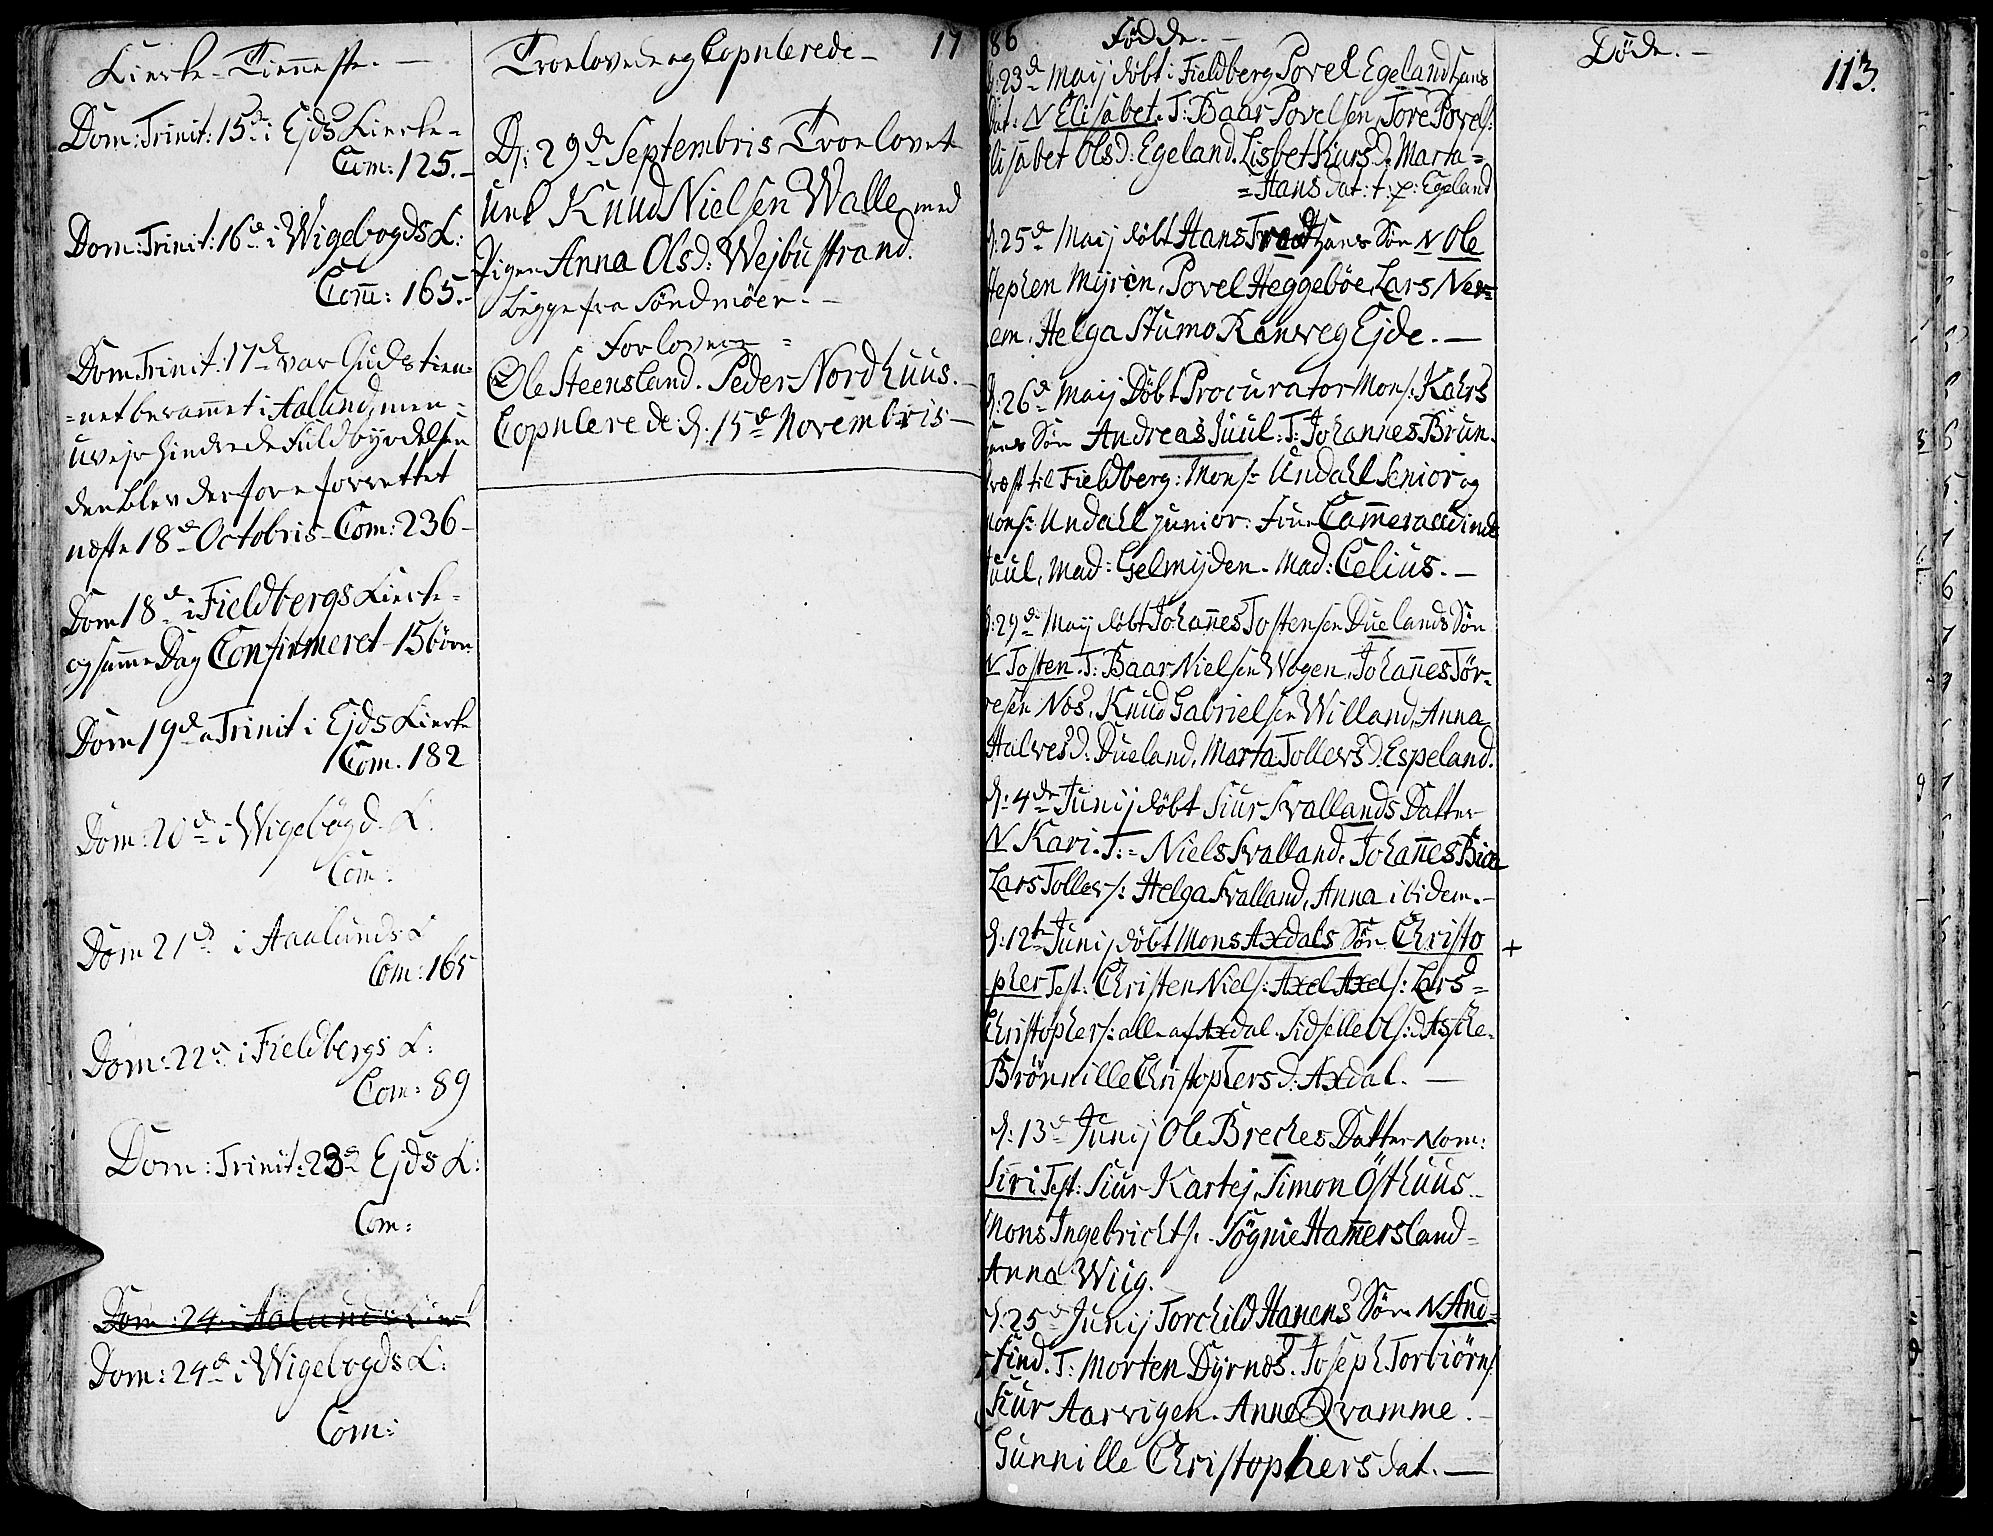 Kierke-Tienneste. —
Dom: Trinit: 15de i Ejds Kierke-
Com: 125.-
Dom: Trinit: 16de i Wigebøgds K:
Com: 165.-
Dom Trinit: 17de var Guds tien-
=net berammet i Aalund, men-
uvejr hindrede Fuldbyrdelsen
den blev derfore forrettet
næste 18de Octobris- Com: 236-
Dom 18de i Fieldbergs Kierke-
og samme Dag Confirmeret 15 børn
Dom 19de a Trinit i Ejds Kierke
Com. 182
Dom: 20de i Wigebøgd. K:
Com:
Dom 21de i Aaalunds K
Com: 165
Dom: 22de i Fieldbergs K:
Com: 89
Dom: Trinit: 23de Ejds K:
Com:
Dom: 24 i Aalunds Kierk
Dom: 24de i Wigebogds K:
Com:
Troelovede og Copulerede- 17
D: 29de Septembris Troelovet
unk Knud Nielsen Walle med
Pigen Anna Olsd: Wejbustrand.
begge fra Søndmøer. -
Forlovere =
Ole Steensland. Peder Nordhuus.-
Copulerede d. 15de Novembris-
86 Fødde. -
d: 23de Maij døbt i Fieldberg Povel Egeland hans
dat: N Elisabet. T: Baar Povelsen, Tore Povels:
Elisabet Olsd: Egeland. Lisbet Siursd: Marta=
=Hans dat: t: p: Egeland
d: 25de Maij døbt Hans hans Søn N Ole
Stephen Myren, Povel Heggebøe, Lars Ner=
em. Helga Stumo Ranveg Ejde. —
d: 26de Maij Døbt Procurator Mons: Kahrs
hans Søn Andreas Juul: T: Johannes Brun.
Præst til Fieldberg: Mons: Undahl Senior og
Mons: Undahl junior. Frue Cammeraadinde
Juul, Mad: Gelmijden. Mad: Celius. —
d: 29de Maij døbt Johannes Tostensen Duelands Søn
N Tosten. T: Baar Nielsen Wogen, Johannes Tør-
resen Nos, Knud Gabrielsen Willand, Anna
Halvesd: Dueland, Marta Tollevsd: Espeland.
d: 4de Junij døbt Siur Kvallands Datter
N Kari. T: = Niels Kvalland, Johannes Bien
Lars Tollevs: Helga Kvalland, Anna ibidem. -
d: 12te Junij døbt Mons Axdals Søn Christo +
pher Test: Christen Niels: Axel Axels: Lars=
Christophers: alle af Axdal. Sidselle Ols:d Aske-
Brønnille Christophersd: Axdal. —
d: 13de Junij Ole Breches Datter Nom:
Siri Test: Siur Kartej, Simon Östhuus.-
Mons Ingebrichts. - Søgnie Hamersland-
Anna Wiig.
d: 25de Junij Torchild Hanens Søn N And=
-find. T: Morten Dyrnos. Joseph Torbiørns.
Siur Aarvigen. Anne Qvamme. -
Gunnille Christophersdat. —
Døde. -
113.